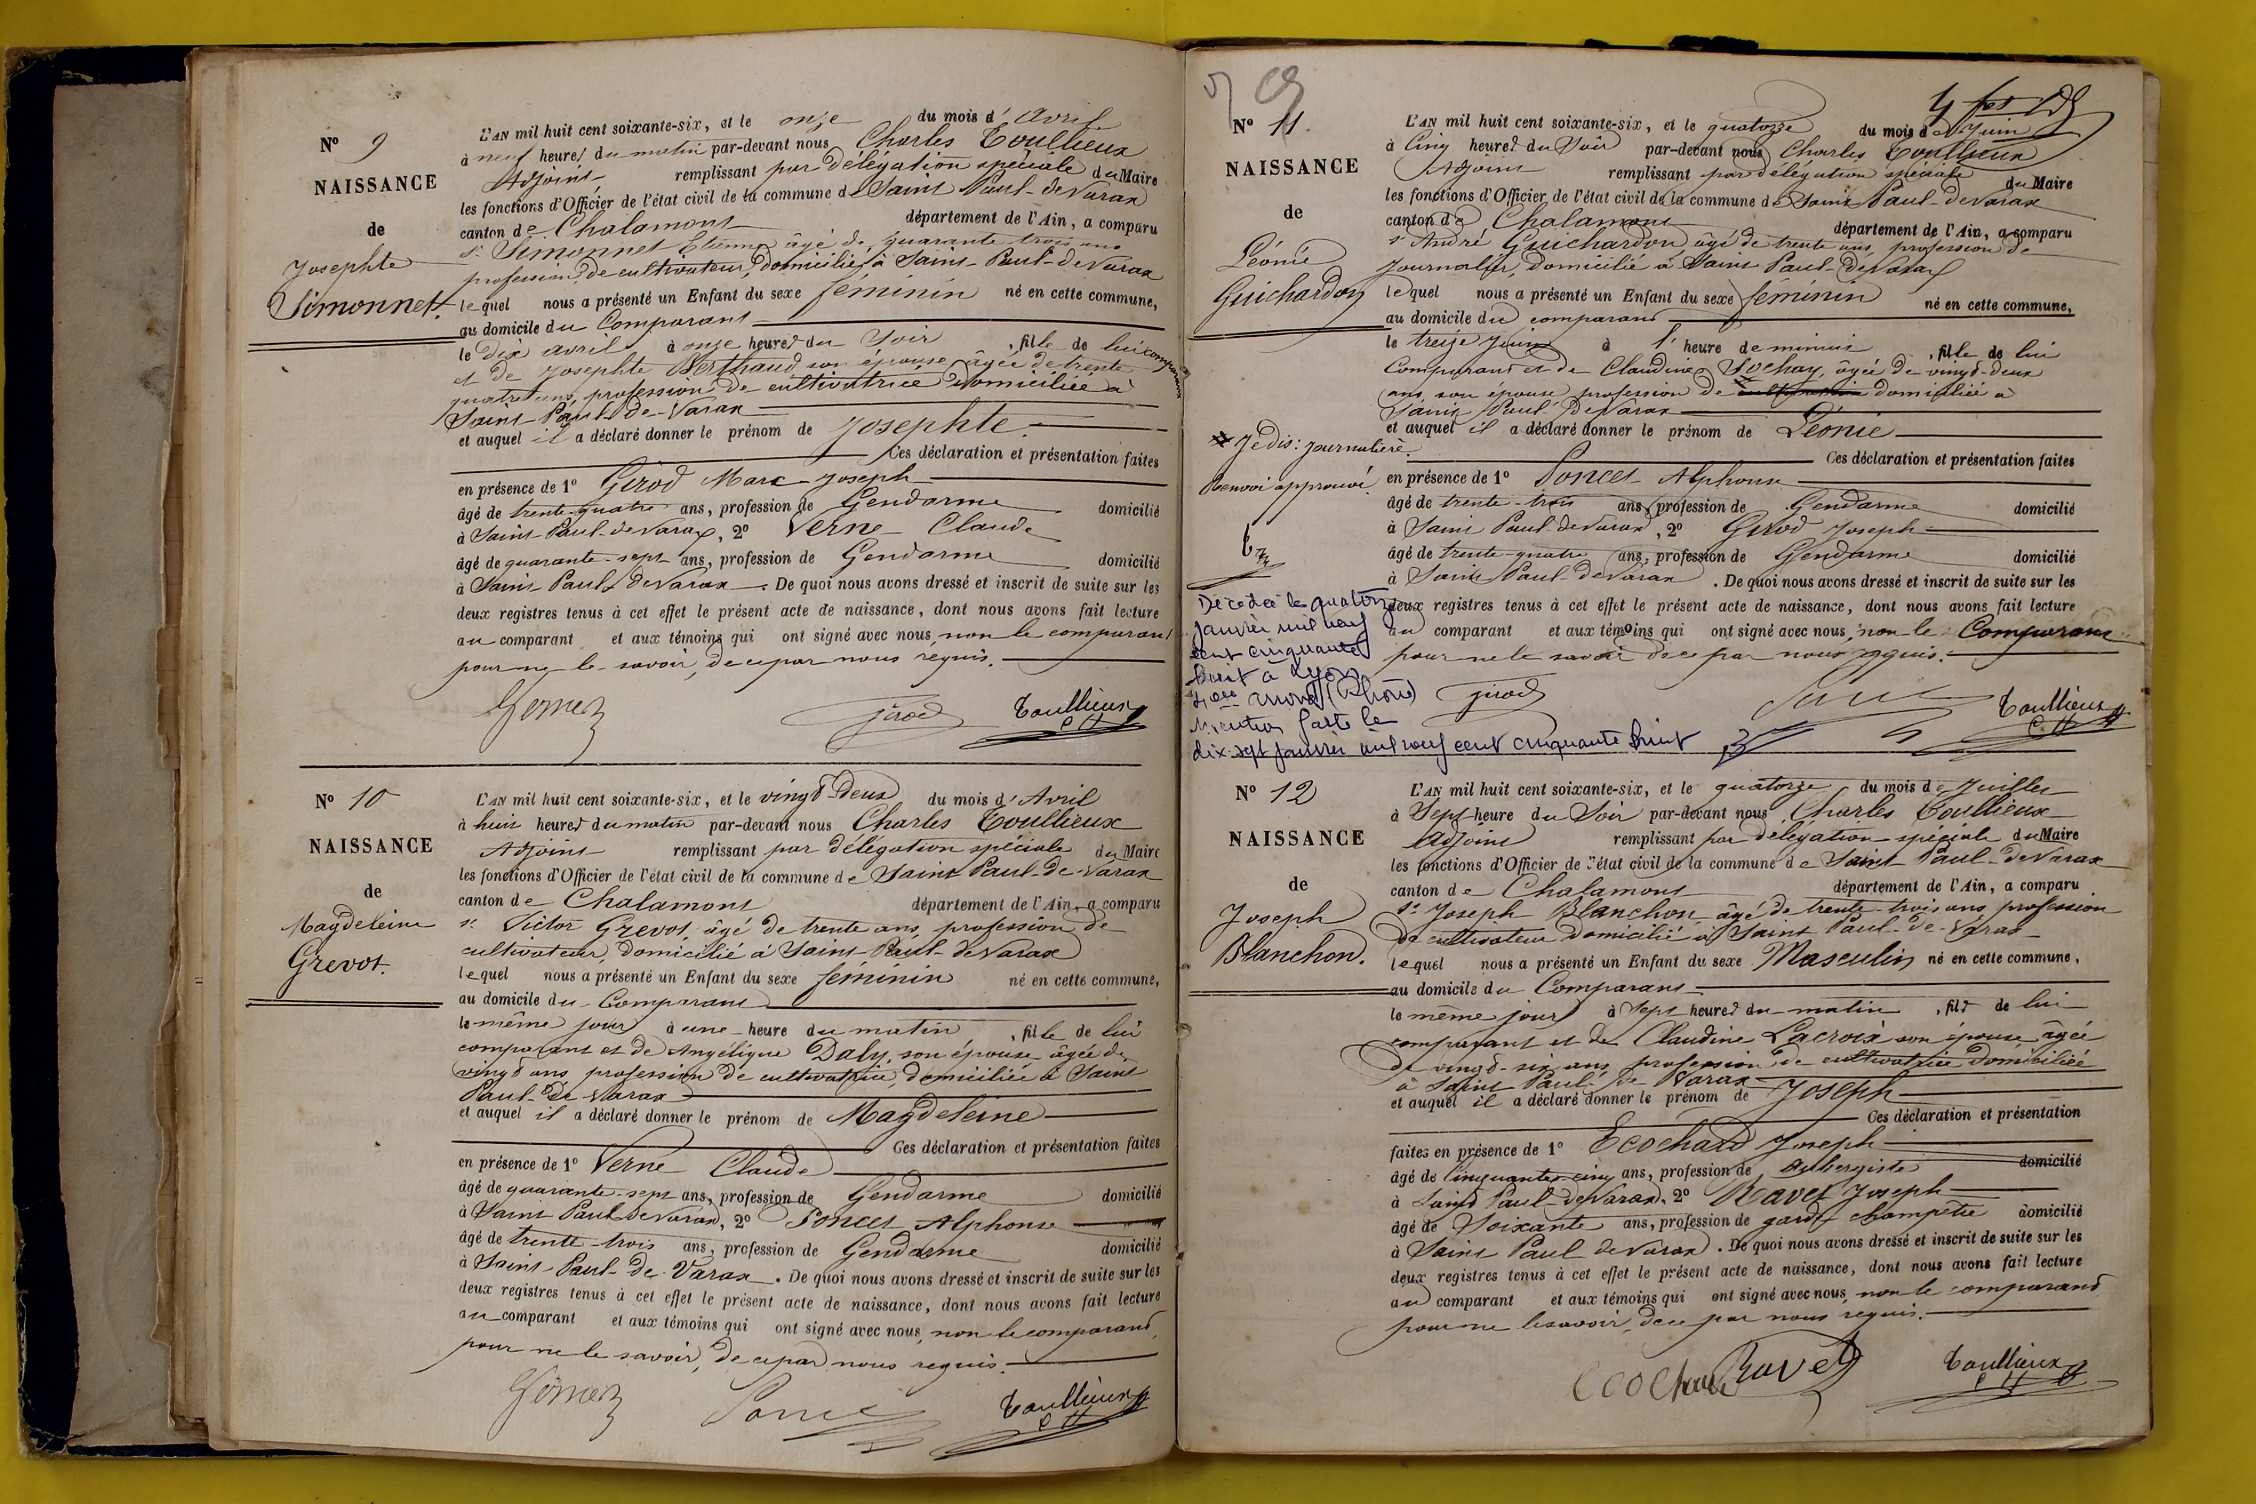 Nº 9
NAISSANCE
de
Josephte
Simonnet.
L'AN mil huit cent soixante-six, et le onze du mois d'Avril
à neuf heures du matin par-devant nous Charles Toullieux
Adjoint remplissant par délégation spéciale du Maire
les fonctions d'Officier de l'état civil de la commune de Saint Paul-de Varax
canton de Chalamont département de l'Ain, a comparu
sr Simonnet Etienne âgé de quarante trois ans
profession de cultivateur, domicilié à Saint-Paul-de Varax
lequel nous a présenté un Enfant du sexe féminin né en cette commune,
au domicile du Comparant
le dix avril à onze heures du Soir, fille de lui comparant
et de Josephte Berthaud son épouse âgée de trente
quatre ans, profession de cultivatrice domiciliée à
Saint-Paul-de-Varax
et auquel il a déclaré donner le prénom de Josephte.
Ces déclaration et présentation faites
en présence de 1º Girod Marc-Joseph
âgé de trente-quatre ans, profession de Gendarme domicilié
à Saint-Paul-de Varax, 2º Verne Claude
âgé de quarante-sept ans, profession de Gendarme domicilié
à Saint Paul de Varax. De quoi nous avons dressé et inscrit de suite sur les
deux registres tenus à cet effet le présent acte de naissance, dont nous avons fait lecture
au comparant et aux témoins qui ont signé avec nous non le comparant
pour ne le savoir, de ce par nous requis.
girod Toullieux
Nº 10
NAISSANCE
de
Magdeleine
Grevot.
L'AN mil huit cent soixante-six, et le vingt-deux du mois d'Avril
à huit heures du matin par-devant nous Charles Toullieux
Adjoint remplissant par délégation spéciale du Maire
les fonctions d'Officier de l'état civil de la commune de Saint Paul-de-Varax
canton de Chalamont département de l'Ain, a comparu
sr Victor Grevot âgé de trente ans, profession de
cultivateur, domicilié à Saint-Paul-de Varax
lequel nous a présenté un Enfant du sexe féminin né en cette commune,
au domicile du Comparant
le même jour à une heure du matin, fille de lui
comparant et de Angélique Daly, son épouse âgée de
vingt ans profession de cultivatrice, domiciliée à Saint
Paul-de Varax
et auquel il a déclaré donner le prénom de Magdeleine
Ces déclaration et présentation faites
en présence de 1º Verne Claude
âgé de quarante-sept ans, profession de Gendarme domicilié
à Saint Paul de Varax, 2º Poncet Alphonse
âgé de trente-trois ans, profession de Gendarme domicilié
à Saint-Paul-de-Varax. De quoi nous avons dressé et inscrit de suite sur les
deux registres tenus à cet effet le présent acte de naissance, dont nous avons fait lecture
au comparant et aux témoins qui ont signé avec nous, non le comparant,
pour ne le savoir, de ce par nous requis.
Toullieux
Nº 11.
NAISSANCE
de
Léonie
Guichardon
L'AN mil huit cent soixante-six, et le quatorze du mois de Juin
à Cinq heures du Soir par-devant nous Charles Toullieux
Adjoint remplissant par délégation spéciale du Maire
les fonctions d'Officier de l'état civil de la commune de Saint Paul-de Varax
canton de Chalamont département de l'Ain, a comparu
sr André Guichardon âgé de trente ans, profession de
journalier, domicilié à Saint Paul-de Varax
lequel nous a présenté un Enfant du sexe féminin né en cette commune,
au domicile du comparant
le treize Juin à l'heure de minuit, fille de lui
Comparant et de Claudine Sochay, âgée de vingt-deux
ans, son épouse profession de cultivatrice domiciliée à
Saint Paul de Varax
et auquel il a déclaré donner le prénom de Léonie
Je dis: journalière.
Renvoi approuvé.
Ces déclaration et présentation faites
en présence de 1º Poncet Alphonse
âgé de trente-trois ans profession de Gendarme domicilié
à Saint Paul-de Varax, 2º Girod Joseph
âgé de trente-quatre ans, profession de Gendarme domicilié
à Saint Paul-de Varax. De quoi nous avons dressé et inscrit de suite sur les
deux registres tenus à cet effet le présent acte de naissance, dont nous avons fait lecture
au comparant et aux témoins qui ont signé avec nous, non le Comparant
pour ne le savoir de ce par nous requis.
girod Toullieux
Décédée le quatorze
janvier mil neuf
cent cinquante
huit à Lyon
4eme arrond (Rhône)
Mention faite le
dix-sept janvier mil neuf cent cinquante huit
Nº 12
NAISSANCE
de
Joseph
Blanchon.
L'AN mil huit cent soixante-six, et le quatorze du mois de Juillet
à Sept heure du Soir par-devant nous Charles Toullieux
Adjoint remplissant par délégation spéciale du Maire
les fonctions d'Officier de l'état civil de la commune de Saint Paul-de Varax
canton de Chalamont département de l'Ain, a comparu
sr Joseph Blanchon âgé de trente-trois ans, profession
de cultivateur domicilié à Saint Paul-de-Varax
lequel nous a présenté un Enfant du sexe Masculin né en cette commune,
au domicile du Comparant
le même jour à Sept heures du matin, fils de lui
comparant et de Claudine Lacroix son épouse âgée
de vingt-six ans, profession de cultivatrice domiciliée
à Saint Paul de Varax
et auquel il a déclaré donner le prénom de Joseph
Ces déclaration et présentation
faites en présence de 1º Ecochard Joseph
âgé de Cinquante-cinq ans, profession de Aubergiste domicilié
à Saint Paul de Varax, 2º Ravet Joseph
âgé de Soixante ans, profession de garde champêtre domicilié
à Saint Paul de Varax. De quoi nous avons dressé et inscrit de suite sur les
deux registres tenus à cet effet le présent acte de naissance, dont nous avons fait lecture
au comparant et aux témoins qui ont signé avec nous, non le comparant
pour ne le savoir, de ce par nous requis.
Ecochard Ravet Toullieux